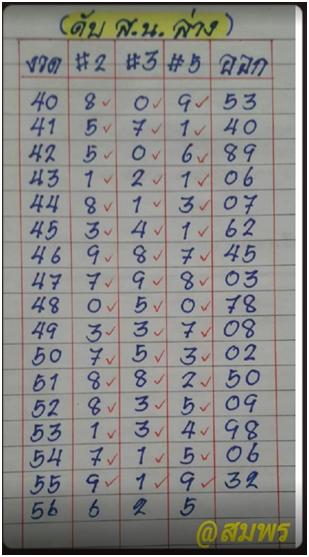 (ดับ ส.น. ล่าง)
งวด #2 #3 #5 ออก
40 8✓ 0✓ 9✓ 53
41 5✓ 7✓ 1✓ 40
42 5✓ 0✓ 6✓ 89
43 1✓ 2✓ 1✓ 06
44 8✓ 1✓ 3✓ 07
45 3✓ 4✓ 1✓ 62
46 9✓ 8✓ 7✓ 45
47 7✓ 9✓ 8✓ 03
48 0✓ 5✓ 0✓ 78
49 3✓ 3✓ 7✓ 08
50 7✓ 5✓ 3✓ 02
51 8✓ 8✓ 2✓ 50
52 8✓ 3✓ 5✓ 09
53 1✓ 3✓ 4✓ 98
54 7✓ 1✓ 5✓ 06
55 9✓ 1✓ 9✓ 32
56 6 2 5
@สมพร